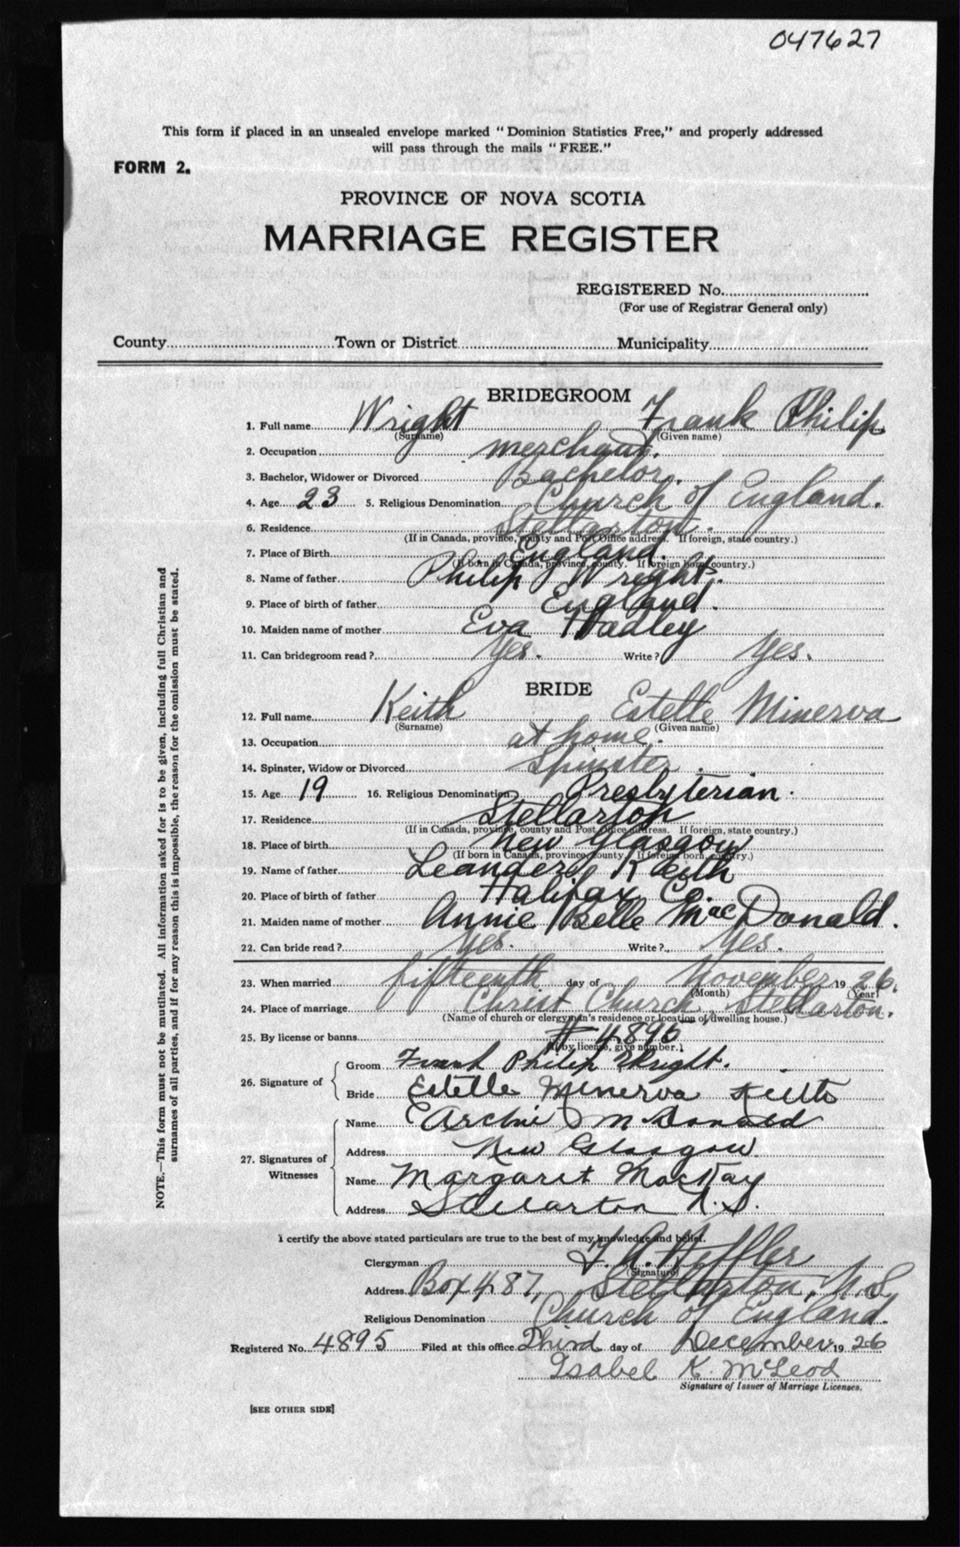 047627
This form if placed in an unsealed envelope marked "Dominion Statistics Free," and properly addressed
will pass through the mails "FREE."
FORM 2.
PROVINCE OF NOVA SCOTIA
MARRIAGE REGISTER
REGISTERED No.
(For use of Registrar General only)
County Town or District Municipality
BRIDEGROOM
1. Full name Wright Frank Philip
(Surname) (Given name)
2. Occupation merchant.
3. Bachelor, Widower or Divorced Bachelor.
4. Age 23 5. Religious Denomination Church of England.
6. Residence Stellarton.
(If in Canada, province, county and Post Office address. If foreign, state country.)
7. Place of Birth England.
(If born in Canada, province, county. If foreign born, country.)
8. Name of father Philip Wright.
9. Place of birth of father England.
10. Maiden name of mother Eva Hadley
11. Can bridegroom read? Yes. Write? Yes.
BRIDE
12. Full name Keith Estelle Minerva
(Surname) (Given name)
13. Occupation at home.
14. Spinster, Widow or Divorced Spinster.
15. Age 19 16. Religious Denomination Presbyterian.
17. Residence Stellarton
(If in Canada, province, county and Post Office address. If foreign, state country.)
18. Place of birth New Glasgow
(If born in Canada, province, county. If foreign born, country.)
19. Name of father Leander Keith
20. Place of birth of father Halifax Co.
21. Maiden name of mother Annie Belle MacDonald.
22. Can bride read? Yes. Write? Yes.
23. When married fifteenth day of November 1926.
(Month) (Year)
24. Place of marriage Christ Church, Stellarton.
(Name of church or clergyman's residence or location of dwelling house.)
25. By license or banns # 4896
(If by license, give number.)
26. Signature of
Groom Frank Philip Wright.
Bride Estelle Minerva Keith
27. Signatures of Witnesses
Name Archie McDonald
Address New Glasgow
Name Margaret MacKay
Address Stellarton N.S.
I certify the above stated particulars are true to the best of my knowledge and belief.
Clergyman F. A. Heffler
(Signature)
Address Box 487, Stellarton, N.S.
Religious Denomination Church of England.
Registered No. 4895 Filed at this office Third day of December 1926
Isabel K. McLeod
Signature of Issuer of Marriage Licenses.
[SEE OTHER SIDE]
NOTE.—This form must not be mutilated. All information asked for is to be given, including full Christian and
surnames of all parties, and if for any reason this is impossible, the reason for the omission must be stated.